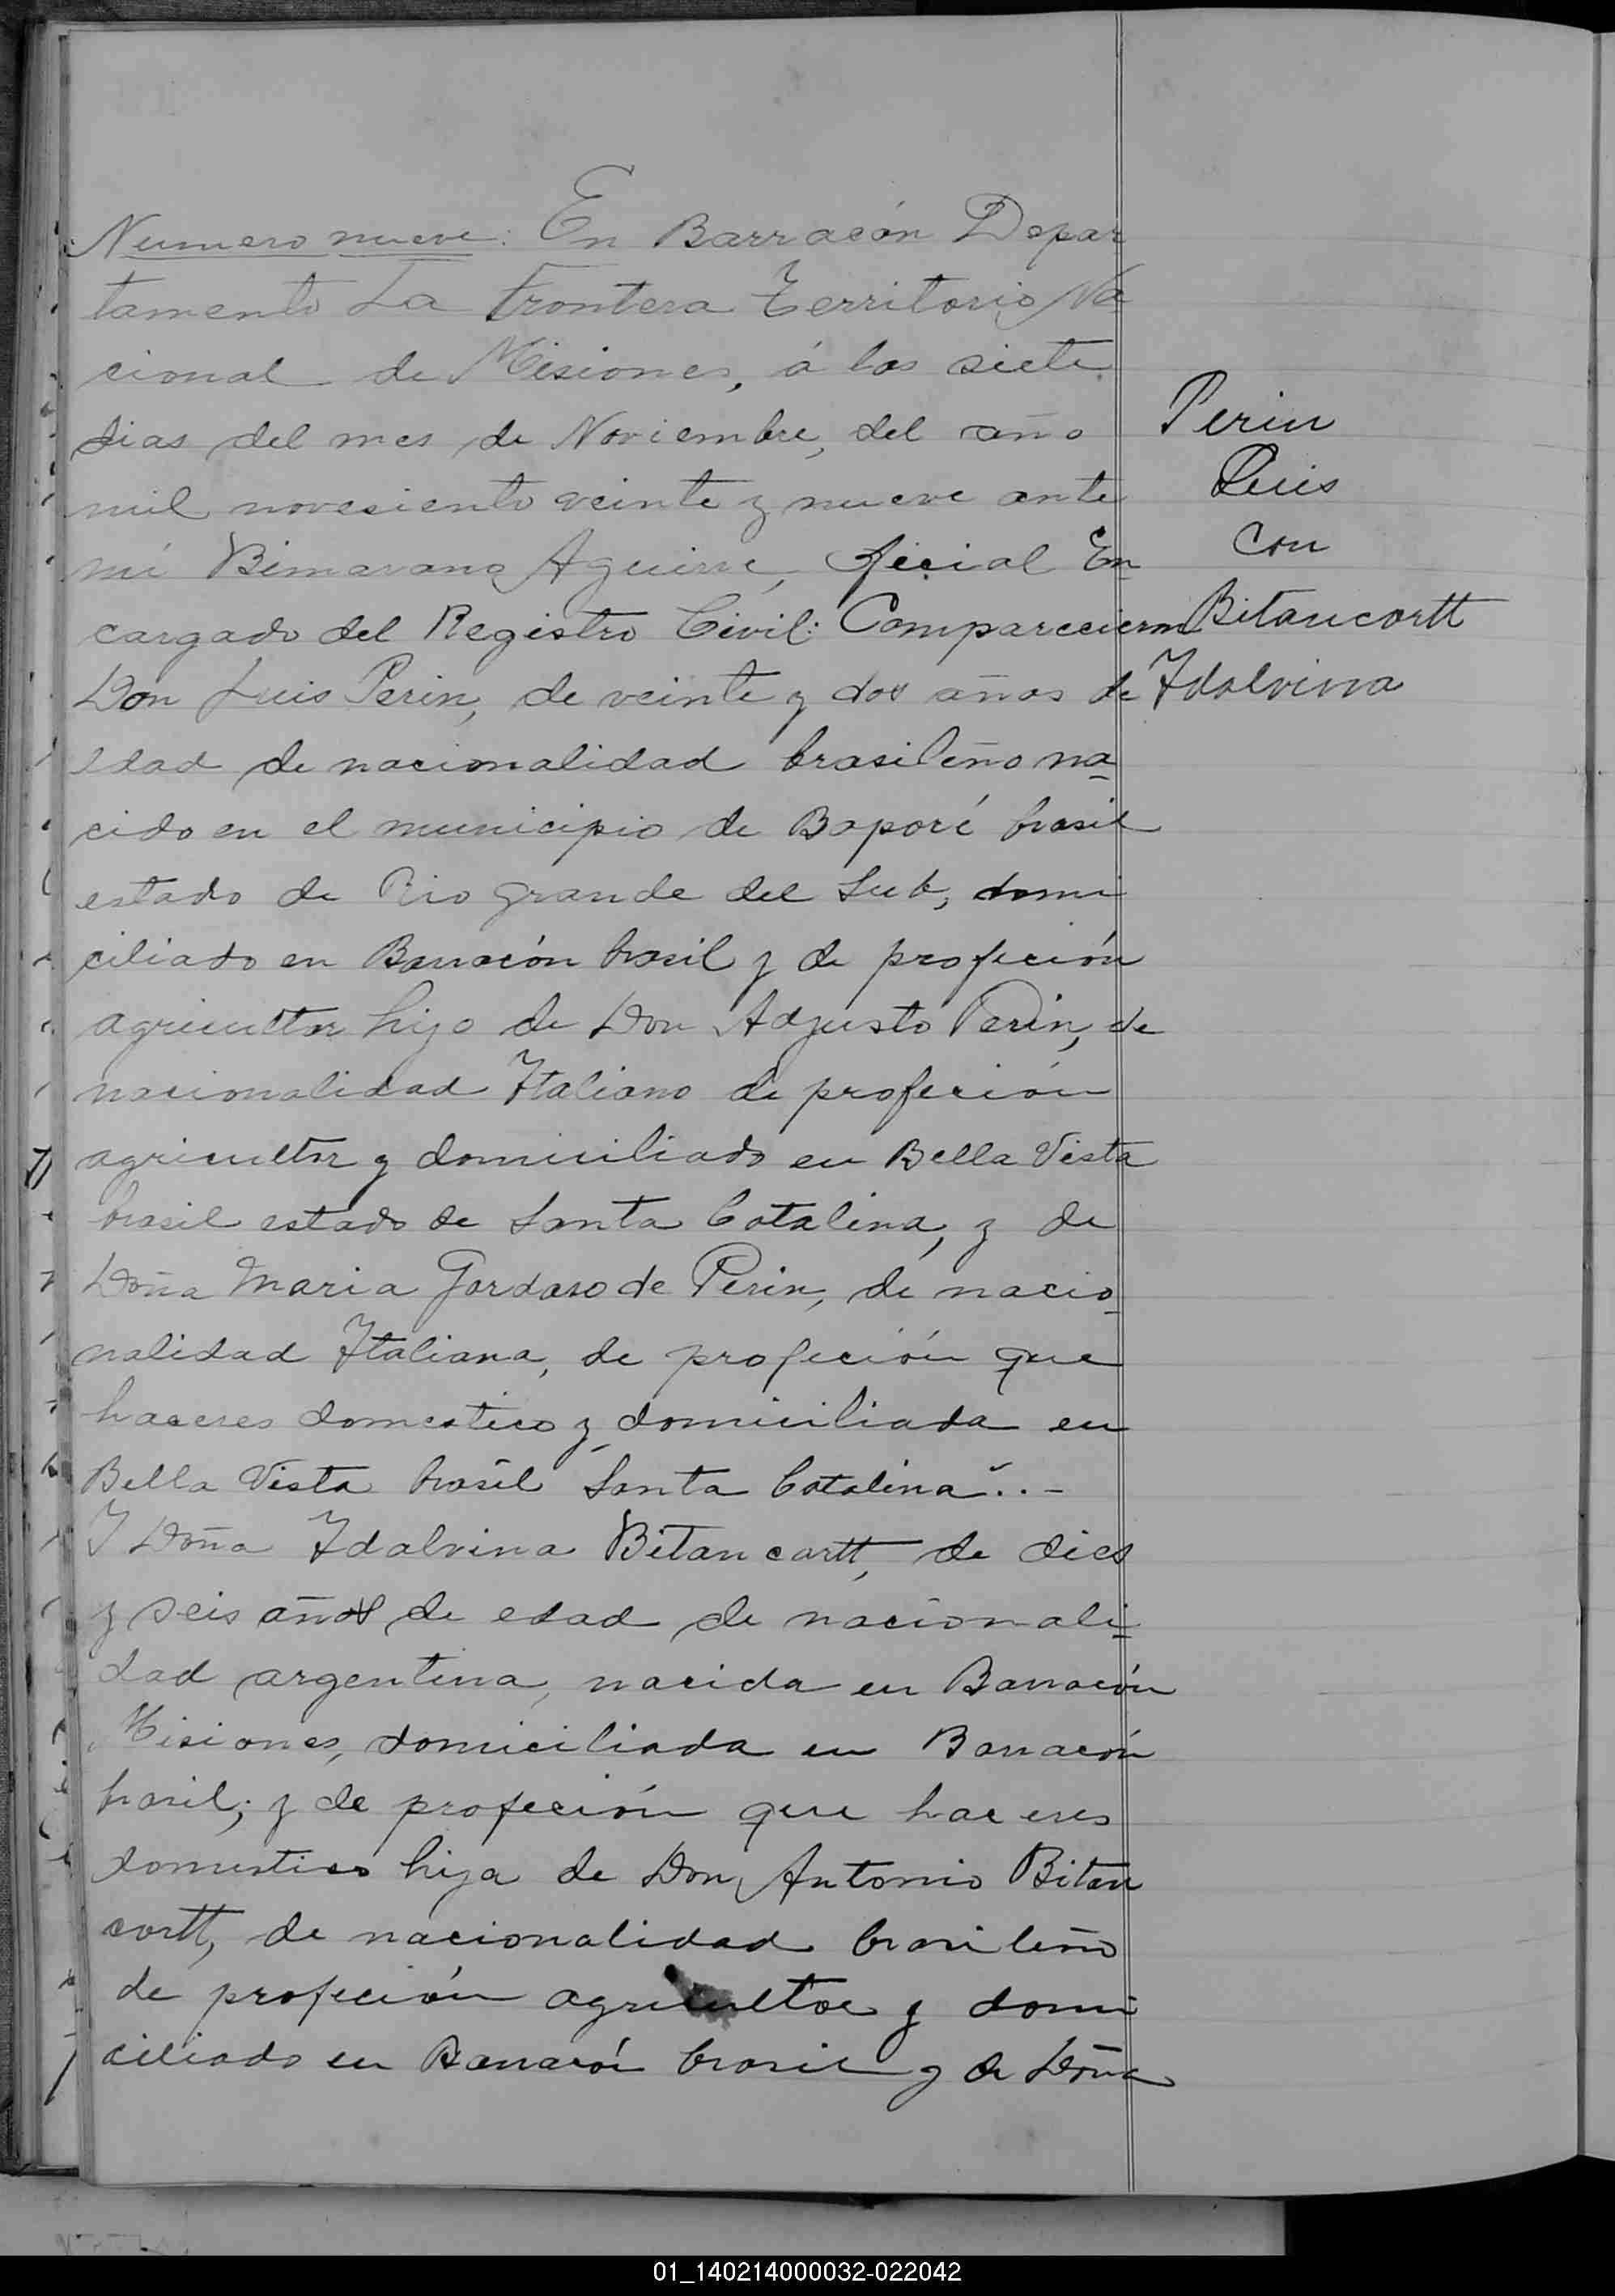 Numero nueve: En Barracón Depar
tamento La Frontera Territorio Na
cional de Misiones, á los siete
dias del mes de Noviembre, del año
mil novesiento veinte y nueve ante
mi Bimarano Aguirre, Oficial En
cargado del Registro Civil: Comparecieron
Don Luis Perin, de veinte y dos años de
edad de nacionalidad brasileño na
cido en el municipio de Baporé brasil
estado de Rio grande del Sub, domi
ciliado en Barracón brasil y de profeción
agricultor hijo de Don Adjusto Perin, de
nacionalidad Italiano de profeción
agricultor y domiciliado en Bella Vista
brasil estado de Santa Catalina, y de
Doña Maria Gordaso de Perin, de nacio
nalidad Italiana, de profeción que
haceres domestico y domiciliada en
Bella Vista brasil Santa Catalina..-
Y Doña Idalvina Bitancortt, de dies
y seis años de edad de nacionali
dad argentina, nacida en Barracón
Misiones, domiciliada en Barracón
brasil; y de profeción que haceres
domestico hija de Don Antonio Bitan
cortt, de nacionalidad brasileño
de profeción agricultor y domi
ciliado en Barracón brasil y de Doña
Perin
Luis
con
Bitancortt
Idalvina
01_140214000032-022042